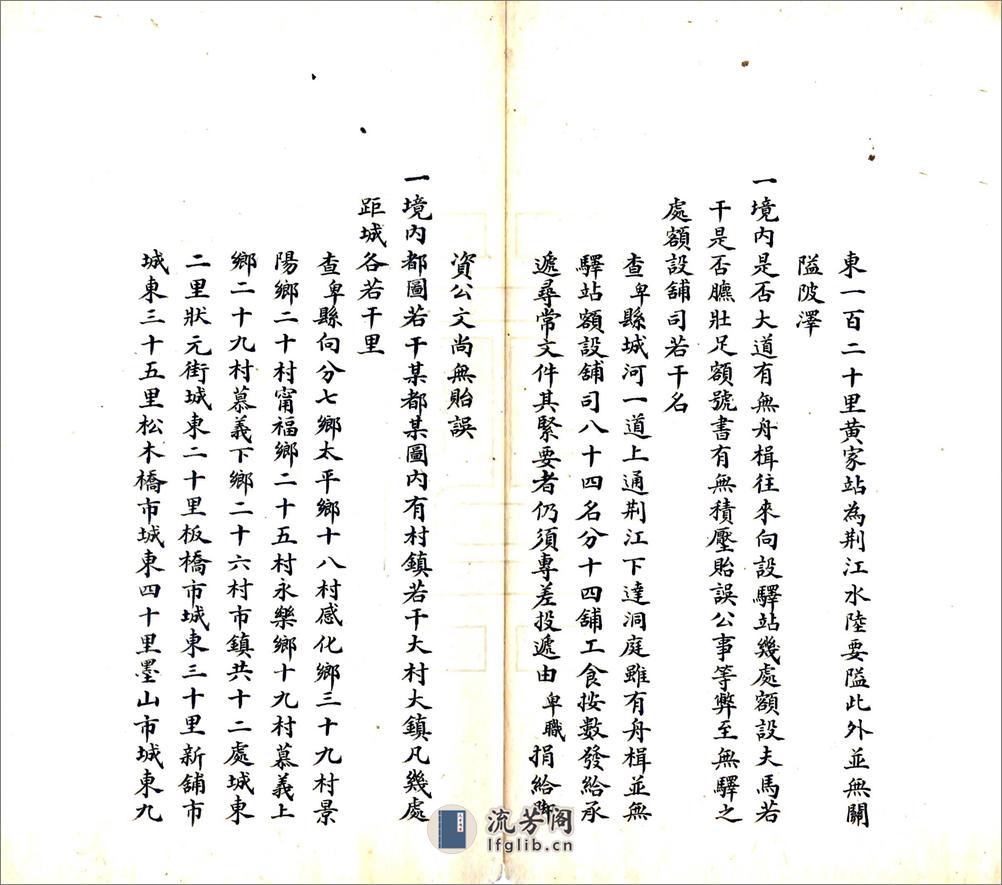 東一百二十里黄家站為荆江水陸要隘此外並無關
隘陂澤
一境内是否大道有無舟楫往來向設驛站幾處額設夫馬若
干是否臕壯足額號書有無積壓貽誤公事等弊至無驛之
處額設舖司若干名
查卑縣城河一道上通荆江下達洞庭雖有舟楫並無
驛站額設舖司八十四名分十四舖工食按數發給承
遞尋常文件其緊要者仍須專差投遞由卑職捐給脚
資公文尚無貽誤
一境内都圖若干某都某圖内有村鎮若干大村大鎮凡幾處
距城各若干里
查卑縣向分七鄉太平鄉十八村感化鄉三十九村景
陽鄉二十村甯福鄉二十五村永樂鄉十九村慕義上
鄉二十九村慕義下鄉二十六村市鎮共十二處城東
二里狀元街城東二十里板橋市城東三十里新舖市
城東三十五里松木橋市城東四十里墨山市城東九
流芳阁
lfglib.cn